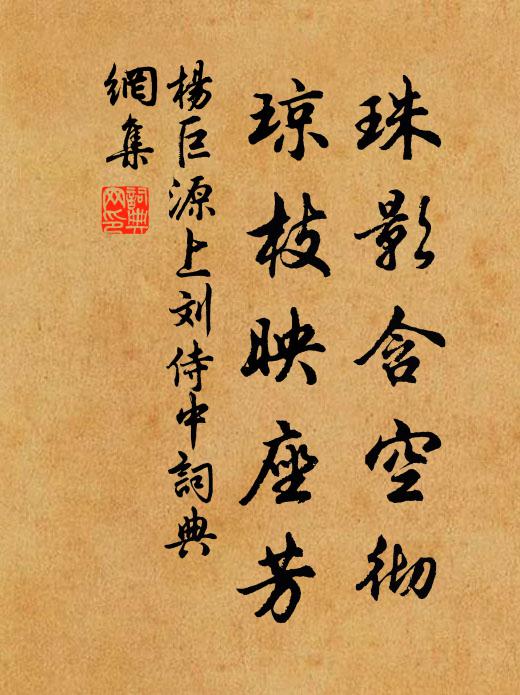 珠影含空彻
琼枝映座芳
楊巨源上刘侍中詞典
網集
詞典
网印